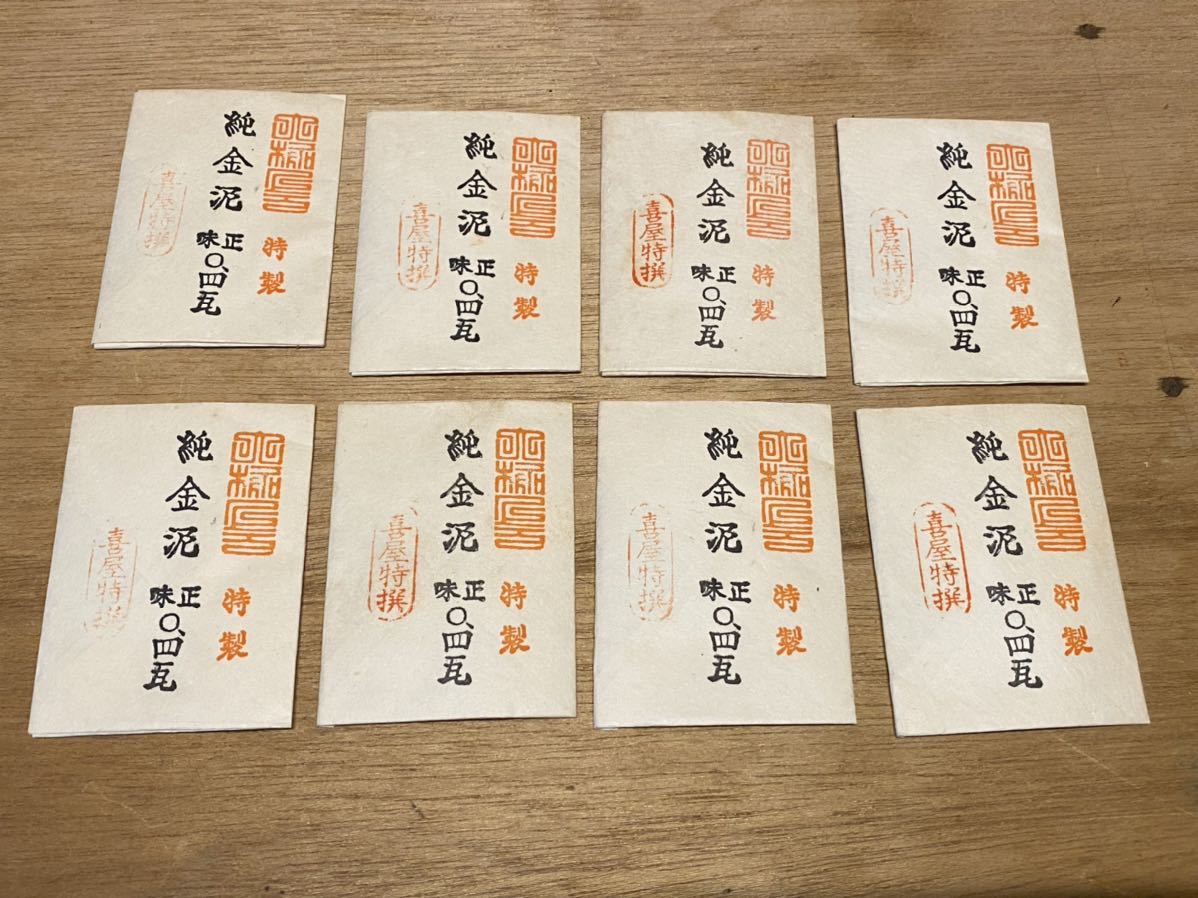 特製
純金泥 正味〇、四瓦
喜屋特撰
特製
純金泥 正味〇、四瓦
喜屋特撰
特製
純金泥 正味〇、四瓦
喜屋特撰
特製
純金泥 正味〇、四瓦
喜屋特撰
特製
純金泥 正味〇、四瓦
喜屋特撰
特製
純金泥 正味〇、四瓦
喜屋特撰
特製
純金泥 正味〇、四瓦
喜屋特撰
特製
純金泥 正味〇、四瓦
喜屋特撰